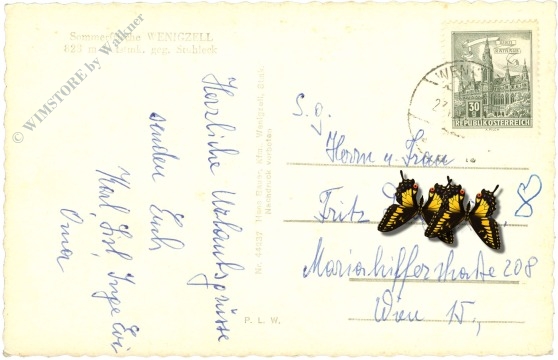 Sommerfrische WENIGZELL
829 m Steierm. geg. Stuhleck
© WIMSTORE by Walkner
Herzliche Urlaubsgrüsse
senden Euch
Karl, Sisl, Inge, Evi
Oma
Nr. 44237 Hans Bauer, Wenigzell, Stmk.
Nachdruck verboten
P. L. W.
WENI
WIEN
RATHAUS
30
REPUBLIK ÖSTERREICH
S. g.
Herrn u. Frau
Fritz
Mariahilferstraße 208
Wien 15.,